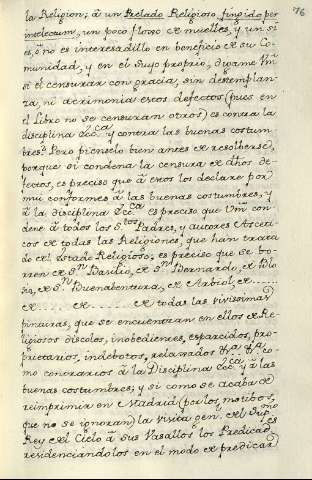 76
la Religion; â un Prelado Religioso fingido per
intelecum, un poco floxo de muelles, y un si
es, ô no es interesadillo en beneficio de su Co-
munidad, y en el suyo proprio, dígame Vm̃
si el censurar con gracia, sin destemplan-
za, ni acrimonia estos defectos (pues en
el Libro no se censuran otros) es contra la
disciplina Ecc.ca y contra las buenas costum-
bres? Pero pienselo bien antes de resolberse,
porque si condena la censura de dhos de-
fectos, es preciso que â estos los declare por
mui conformes â las buenas costumbres, y
â la disciplina Ecc.ca es preciso que Vm̃ con-
dene â todos los S.tos Padres, y autores Asceti-
cos de todas las Religiones, que han trata-
do del estado Religioso: es preciso que se bo-
rren de S.n Basilio, de S.n Bernardo, de Blo-
sio, de S.n Buenabentura, de Arbiol, de ......
de ...... de ...... de todas las vivissimas
pinturas, que se encuentran en ellos de Re-
ligiosos discolos, inobedientes, esparcidos, pro-
prietarios, indebotos, relaxados &.a &.a &.a co-
mo contrarios â la Disciplina Ecc.ca y â las
buenas costumbres; y si como se acaba de
reimprimir en Madrid (por los motibos,
que no se ignoran) la visita gen.l del Sup.mo
Rey del Cielo â sus Vasallos los Predicad.es
residenciandolos en el modo de predicar